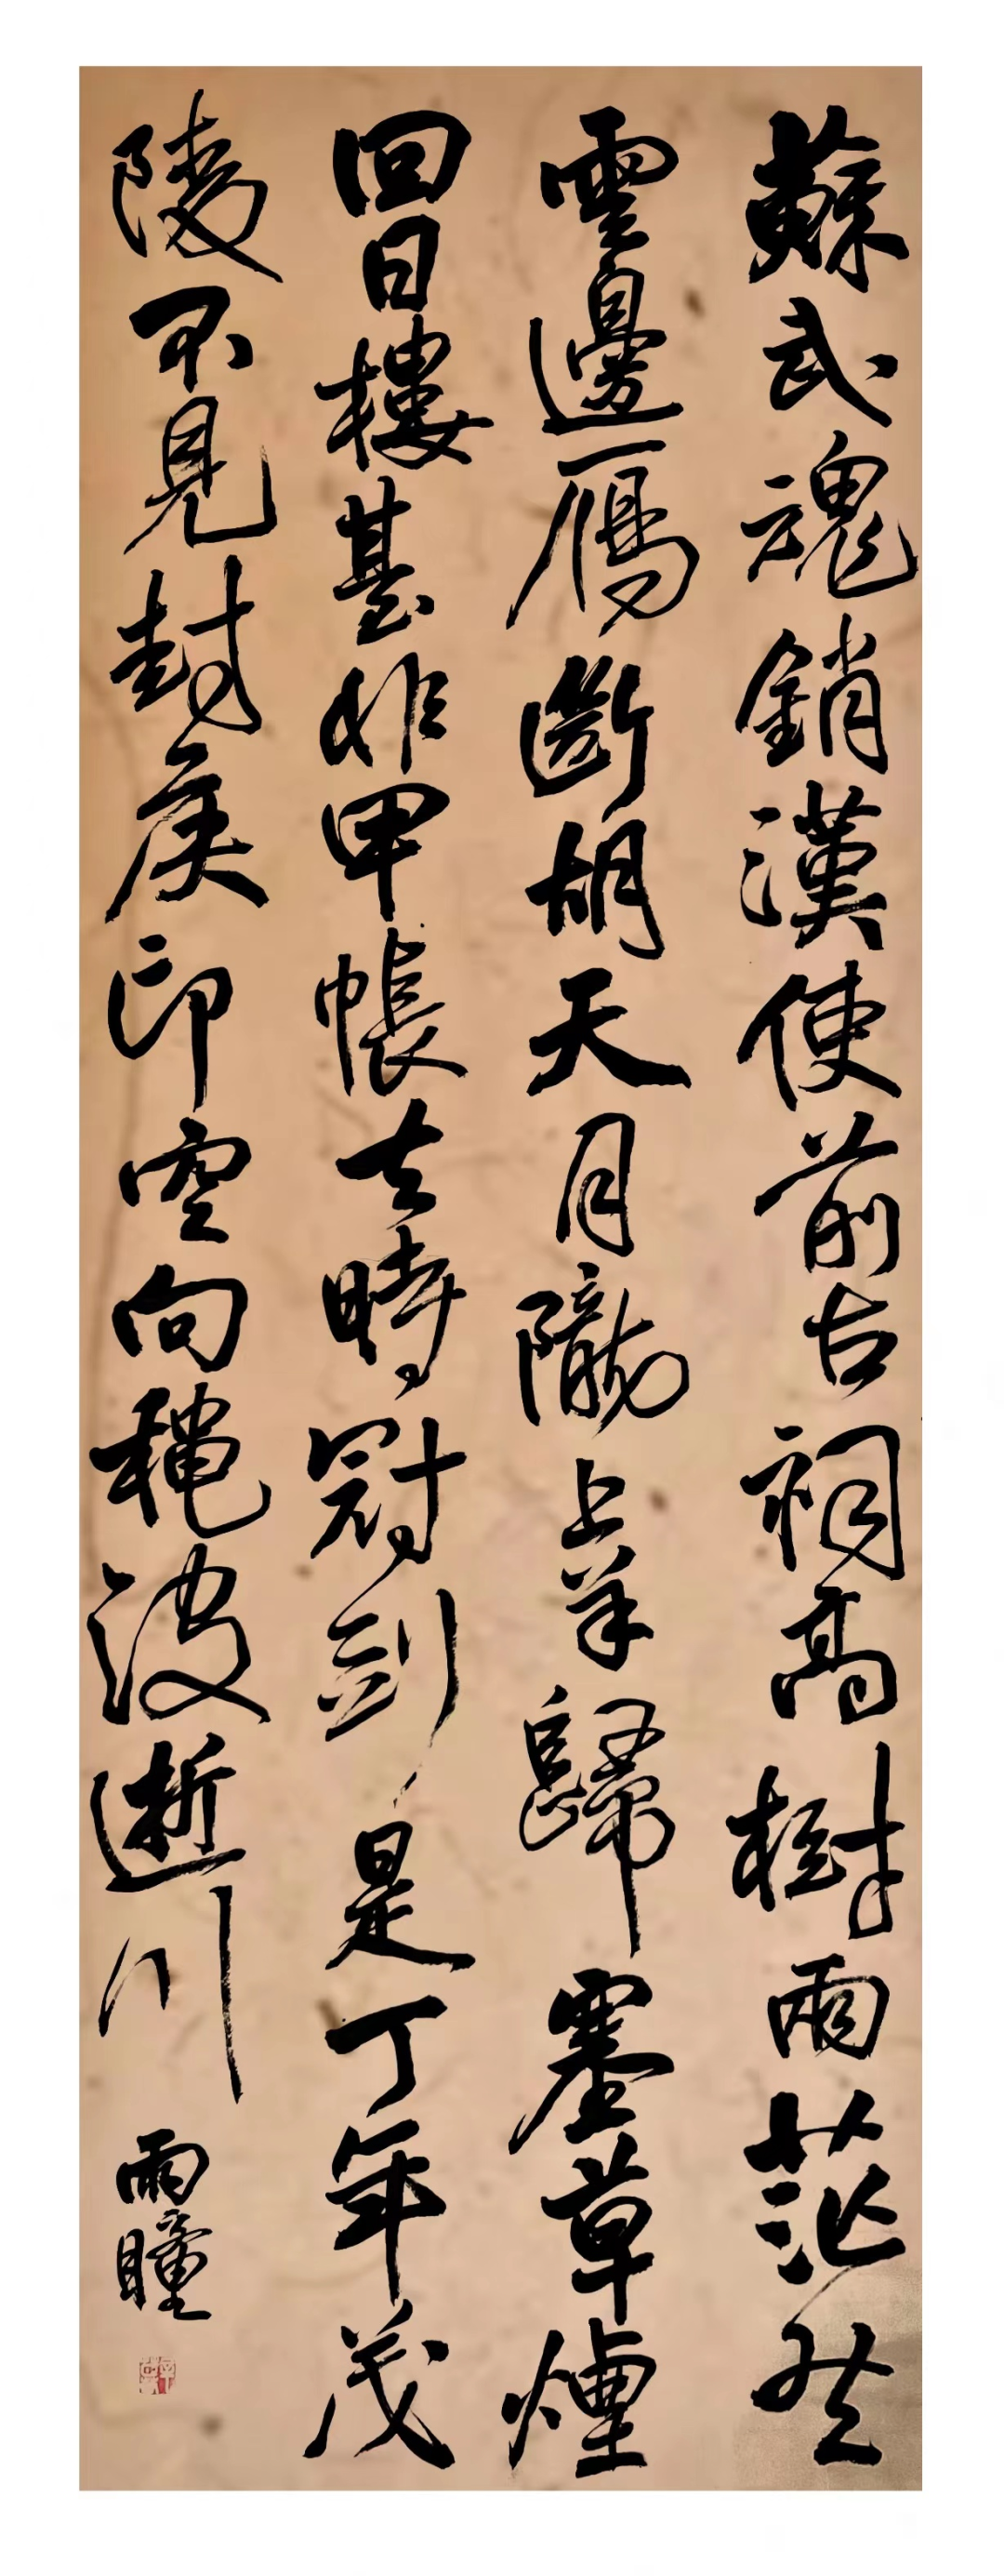 蘇武魂銷漢使前古祠高樹兩茫然
雲邊鴈斷胡天月隴上羊歸塞草煙
回日樓臺非甲帳去時冠劍是丁年茂
陵不見封侯印空向穐波逝川
雨瞳